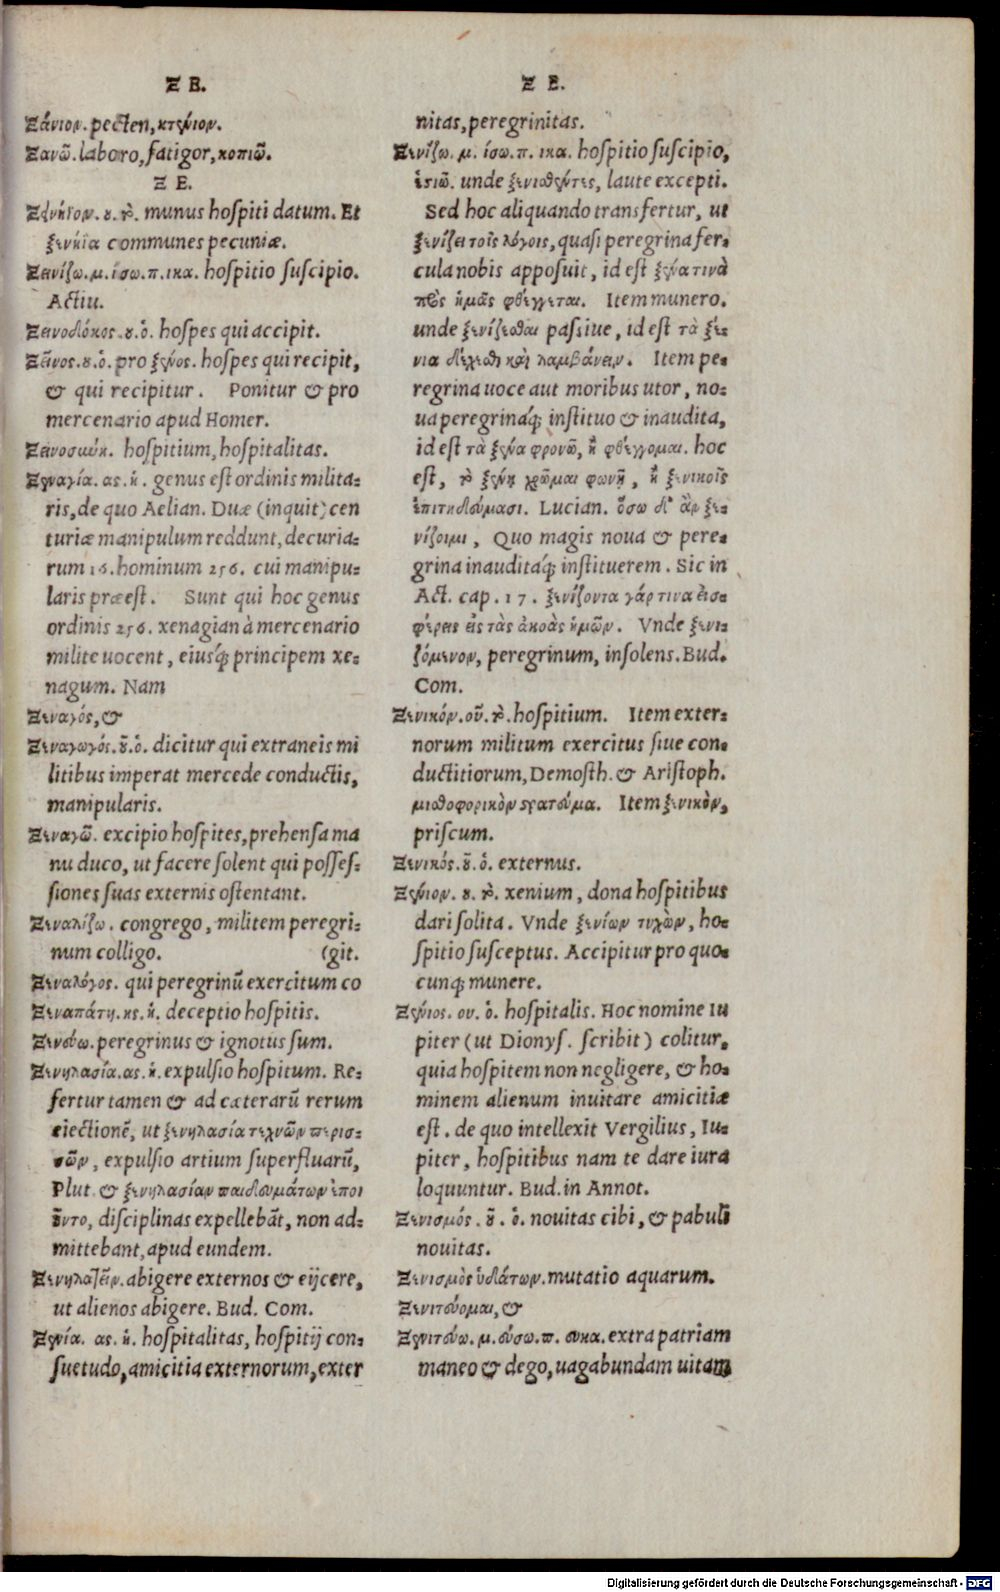 Ξ Ε.
Ξάνιον. pecten, κτένιον.
Ξανῶ. laboro, fatigor, κοπιῶ.
Ξ Ε.
Ξενήϊον. ου. τὸ. munus hospiti datum. Et
ξενήϊα communes pecuniæ.
Ξεινίζω. μ. ίσω. π. ικα. hospitio suscipio.
Actiu.
Ξεινοδόκος. ου. ὁ. hospes qui accipit.
Ξεῖνος. ου. ὁ. pro ξένος. hospes qui recipit,
& qui recipitur. Ponitur & pro
mercenario apud Homer.
Ξεινοσύνη. hospitium, hospitalitas.
Ξεναγία. ας. ἡ. genus est ordinis milita-
ris, de quo Aelian. Duæ (inquit) cen
turiæ manipulum reddunt, decuria-
rum 16. hominum 256. cui manipu-
laris præest. Sunt qui hoc genus
ordinis 256. xenagian à mercenario
milite uocent, eiusq́; principem xe-
nagum. Nam
Ξεναγός, &
Ξεναγωγός. οῦ. ὁ. dicitur qui extraneis mi
litibus imperat mercede conductis,
manipularis.
Ξεναγῶ. excipio hospites, prehensa ma
nu duco, ut facere solent qui posses-
siones suas externis ostentant.
Ξεναλίζω. congrego, militem peregri-
num colligo. (git.
Ξεναλόγος. qui peregrinũ exercitum co
Ξεναπάτη. ης. ἡ. deceptio hospitis.
Ξενεύω. peregrinus & ignotus sum.
Ξενηλασία. ας. ἡ. expulsio hospitum. Re-
fertur tamen & ad cæterarũ rerum
eiectionẽ, ut ξενηλασία τεχνῶν περισ-
σῶν, expulsio artium superfluarũ,
Plut. & ξενηλασίαν παιδευμάτων ἐποι
οῦντο, disciplinas expellebãt, non ad-
mittebant, apud eundem.
Ξενηλατεῖν. abigere externos & eijcere,
ut alienos abigere. Bud. Com.
Ξενία. ας. ἡ. hospitalitas, hospitij con-
suetudo, amicitia externorum, exter
Ξ Ε.
nitas, peregrinitas.
Ξενίζω. μ. ίσω. π. ικα. hospitio suscipio,
ἑστιῶ. unde ξενισθέντες, laute excepti.
Sed hoc aliquando transfertur, ut
ξενίζει τοῖς λόγοις, quasi peregrina fer-
cula nobis apposuit, id est ξένα τινὰ
πρὸς ἡμᾶς φθέγγεται. Item munero.
unde ξενίζεσθαι passiue, id est τὰ ξέ-
νια δέχεσθαι καὶ λαμβάνειν. Item pe-
regrina uoce aut moribus utor, no-
ua peregrinaq́; instituo & inaudita,
id est τὰ ξένα φρονῶ, ἢ φθέγγομαι. hoc
est, τὸ ξένῃ χρῶμαι φωνῇ, ἢ ξενικοῖς
ἐπιτηδεύμασι. Lucian. ὅσῳ δ' ἂν ξε-
νίζοιμι, Quo magis noua & pere-
grina inauditaq́; instituerem. Sic in
Act. cap. 17. ξενίζοντα γάρ τινα εἰσ-
φέρεις εἰς τὰς ἀκοὰς ἡμῶν. Vnde ξενι-
ζόμενον, peregrinum, insolens. Bud.
Com.
Ξενικόν. οῦ. τὸ. hospitium. Item exter-
norum militum exercitus siue con-
ductitiorum, Demosth. & Aristoph.
μισθοφορικὸν στράτευμα. Item ξενικὸν,
priscum.
Ξενικός. οῦ. ὁ. externus.
Ξένιον. ου. τὸ. xenium, dona hospitibus
dari solita. Vnde ξενίων τυχὼν, ho-
spitio susceptus. Accipitur pro quo-
cunq; munere.
Ξένιος. ου. ὁ. hospitalis. Hoc nomine Iu
piter (ut Dionys. scribit) colitur,
quia hospitem non negligere, & ho-
minem alienum inuitare amicitiæ
est. de quo intellexit Vergilius, Iu-
piter, hospitibus nam te dare iura
loquuntur. Bud. in Annot.
Ξενισμός. οῦ. ὁ. nouitas cibi, & pabuli
nouitas.
Ξενισμὸς ὑδάτων. mutatio aquarum.
Ξενιτεύομαι, &
Ξενιτεύω. μ. εύσω. π. ευκα. extra patriam
maneo & dego, uagabundam uitam
Digitalisierung gefördert durch die Deutsche Forschungsgemeinschaft - DFG